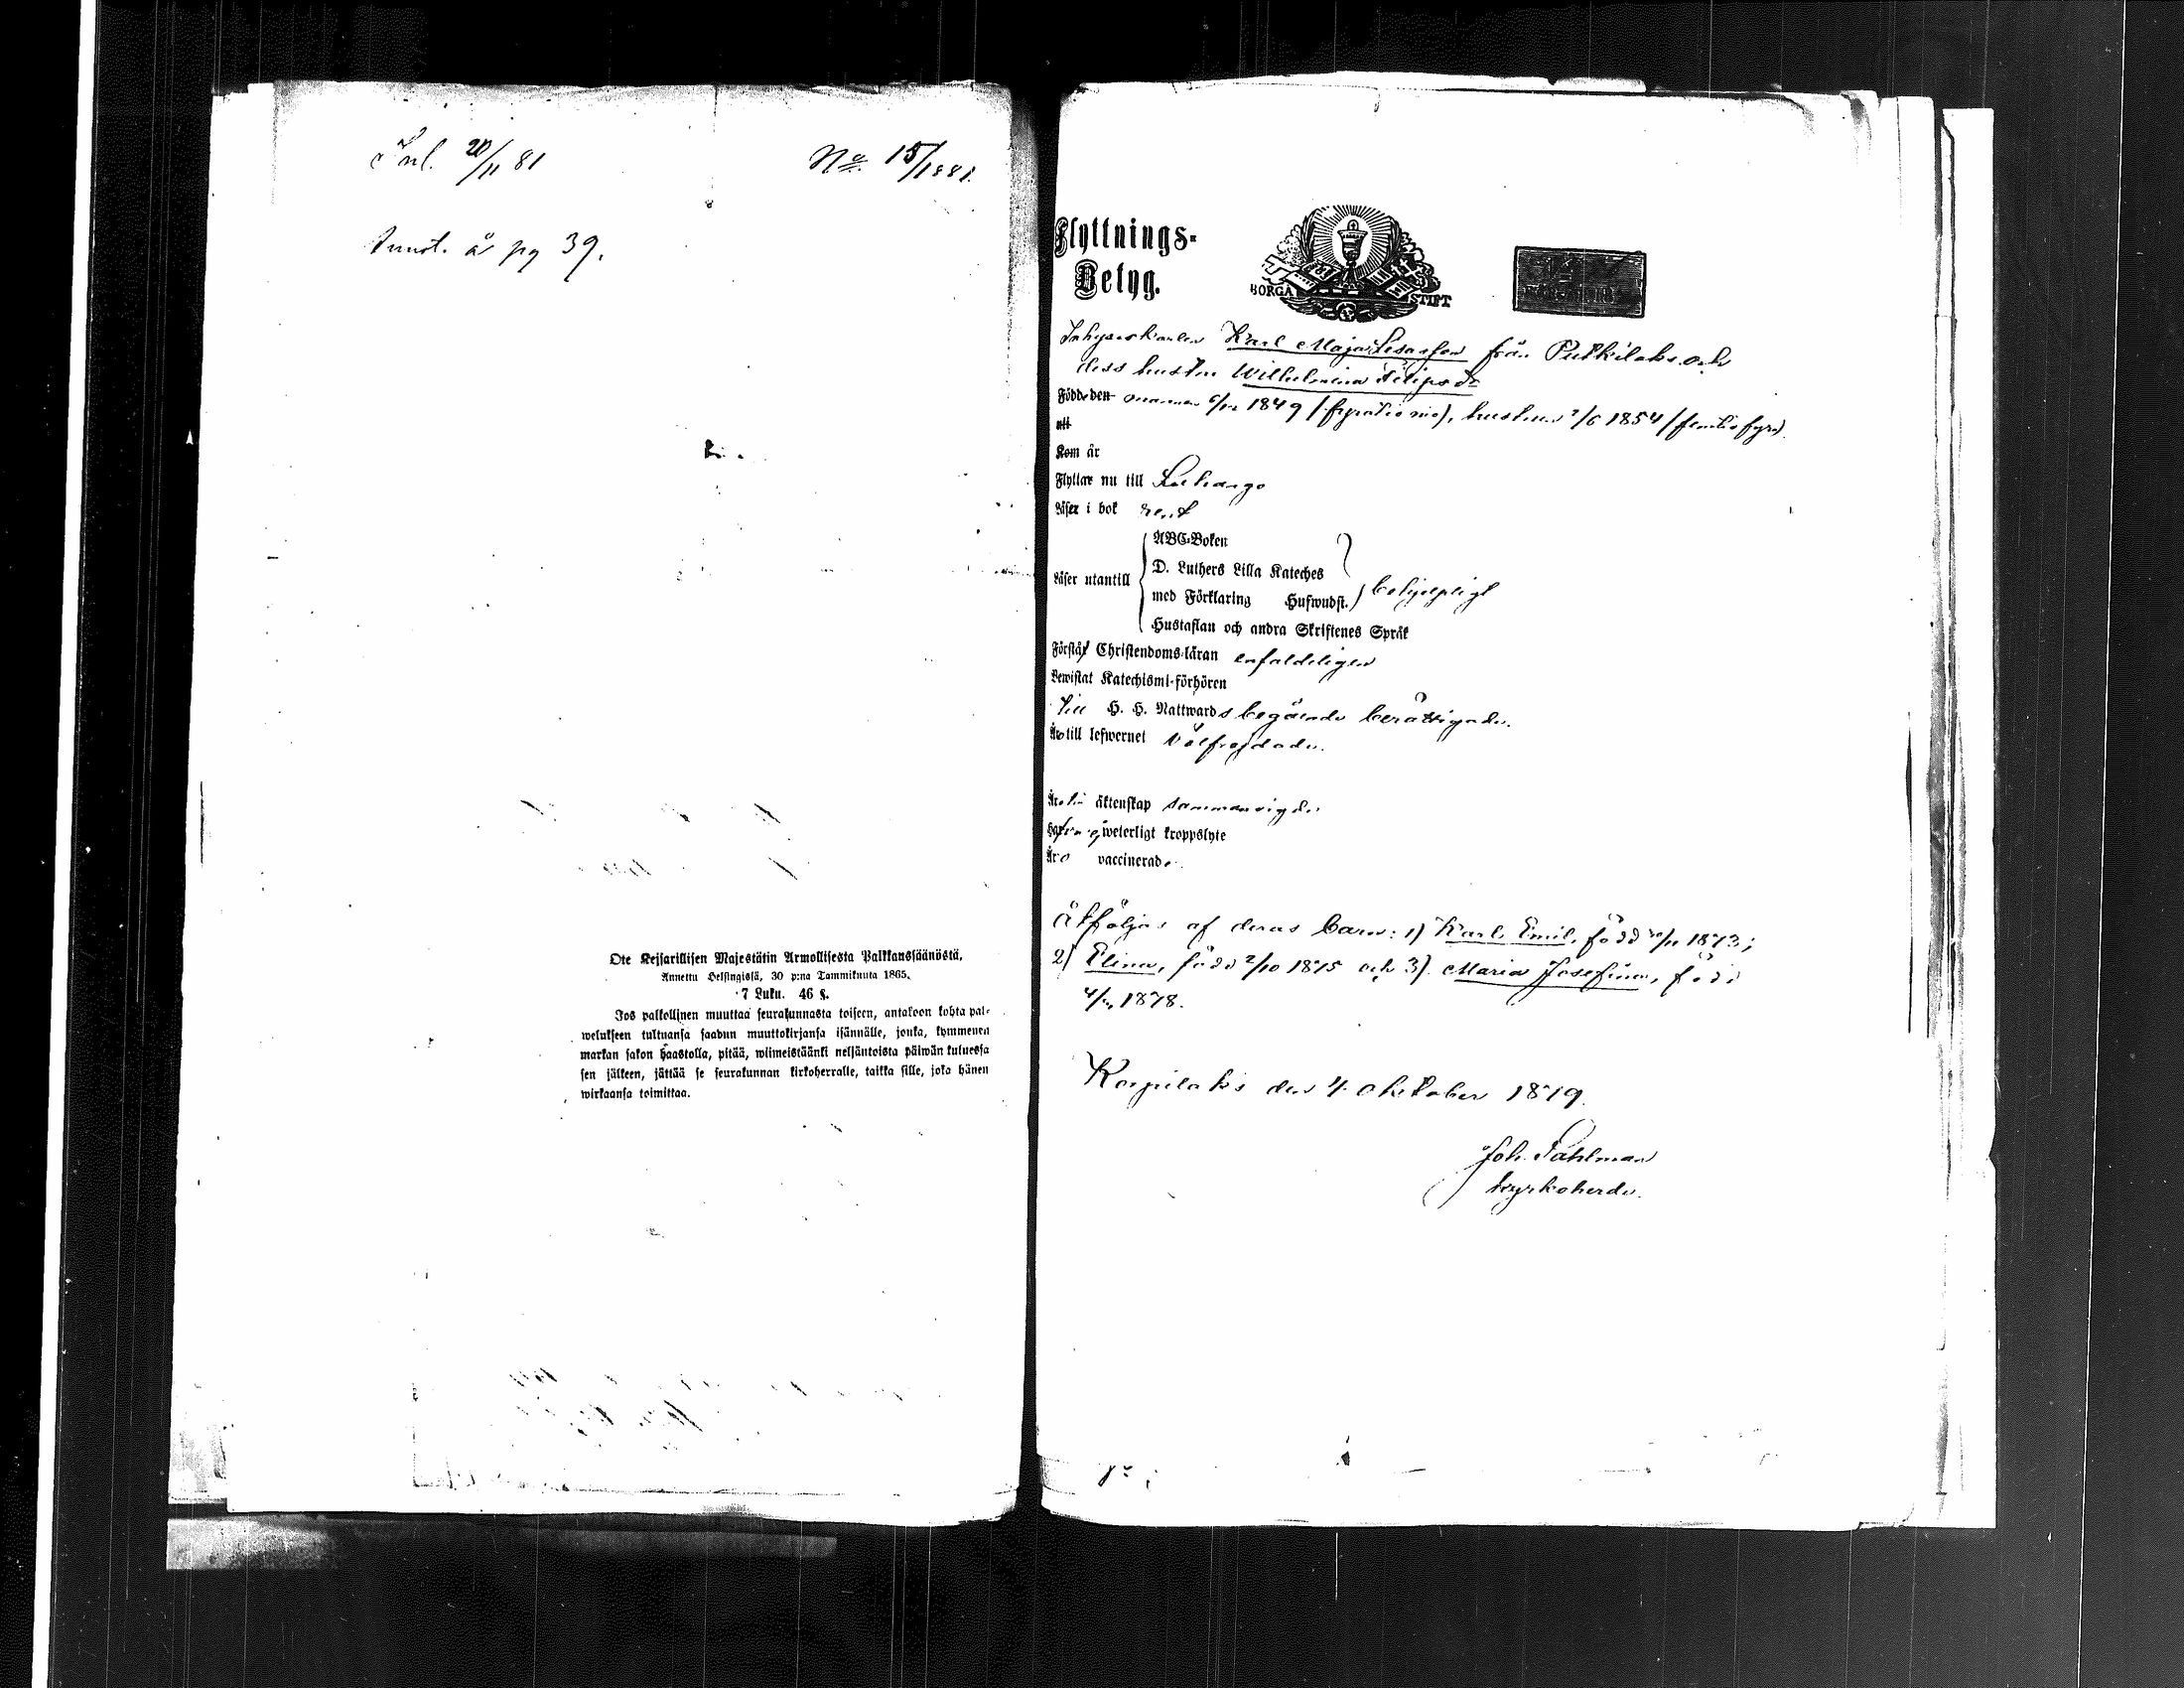 Inl. 20/11 81
No. 15/1881.
Annot. å pg 39.
Ote Keisarillisen Majestätin Armollisesta Palkkaussäännöstä,
Annettu Helsingissä, 30 p:nä Tammikuuta 1865.
7 Luku. 46 §.
Jos palkollinen muuttaa seurakunnasta toiseen, antakoon kohta pal-
welukseen tultuansa saadun muuttokirjansa isännälle, jonka, kymmenen
markan sakon haastolla, pitää, wiimeistäänki neljäntoista päiwän kuluessa
sen jälkeen, jättää se seurakunnan kirkoherralle, taikka sille, joka hänen
wirkaansa toimittaa.
Flyttnings-
Betyg.
BORGÅ STIFT
Inhyseskarlen Karl Maja Lisasson från Putkilaks och
dess hustru Wilhelmina Filipsdr
Född den mannen 1849 (fyratio nio), hustrun 2/6 1854 (femtio fyra).
att
Kom år
Flyttar nu till Luhango
Läser i bok rent
Läser utantill
ABC-Boken
D. Luthers Lilla Kateches
med Förklaring Hufwudst.
behjelpligt
Hustaflan och andra Skriftenes Språk
Förstår Christendoms-läran enfaldeligen
Bewistat Katechismi-förhören
Till H. H. Nattwards begående berättigade.
Äro till lefwernet välfrejdade.
Äro i äktenskap sammanvigde
Hafva ej weterligt kroppslyte
Äro vaccinerade.
Åtföljas af deras barn: 1) Karl Emil, född 1873;
2) Elina, född 2/10 1875 och 3) Maria Josefina, född
1878.
Korpilaks den 4 Oktober 1879.
Joh. Pahlman
kyrkoherde.